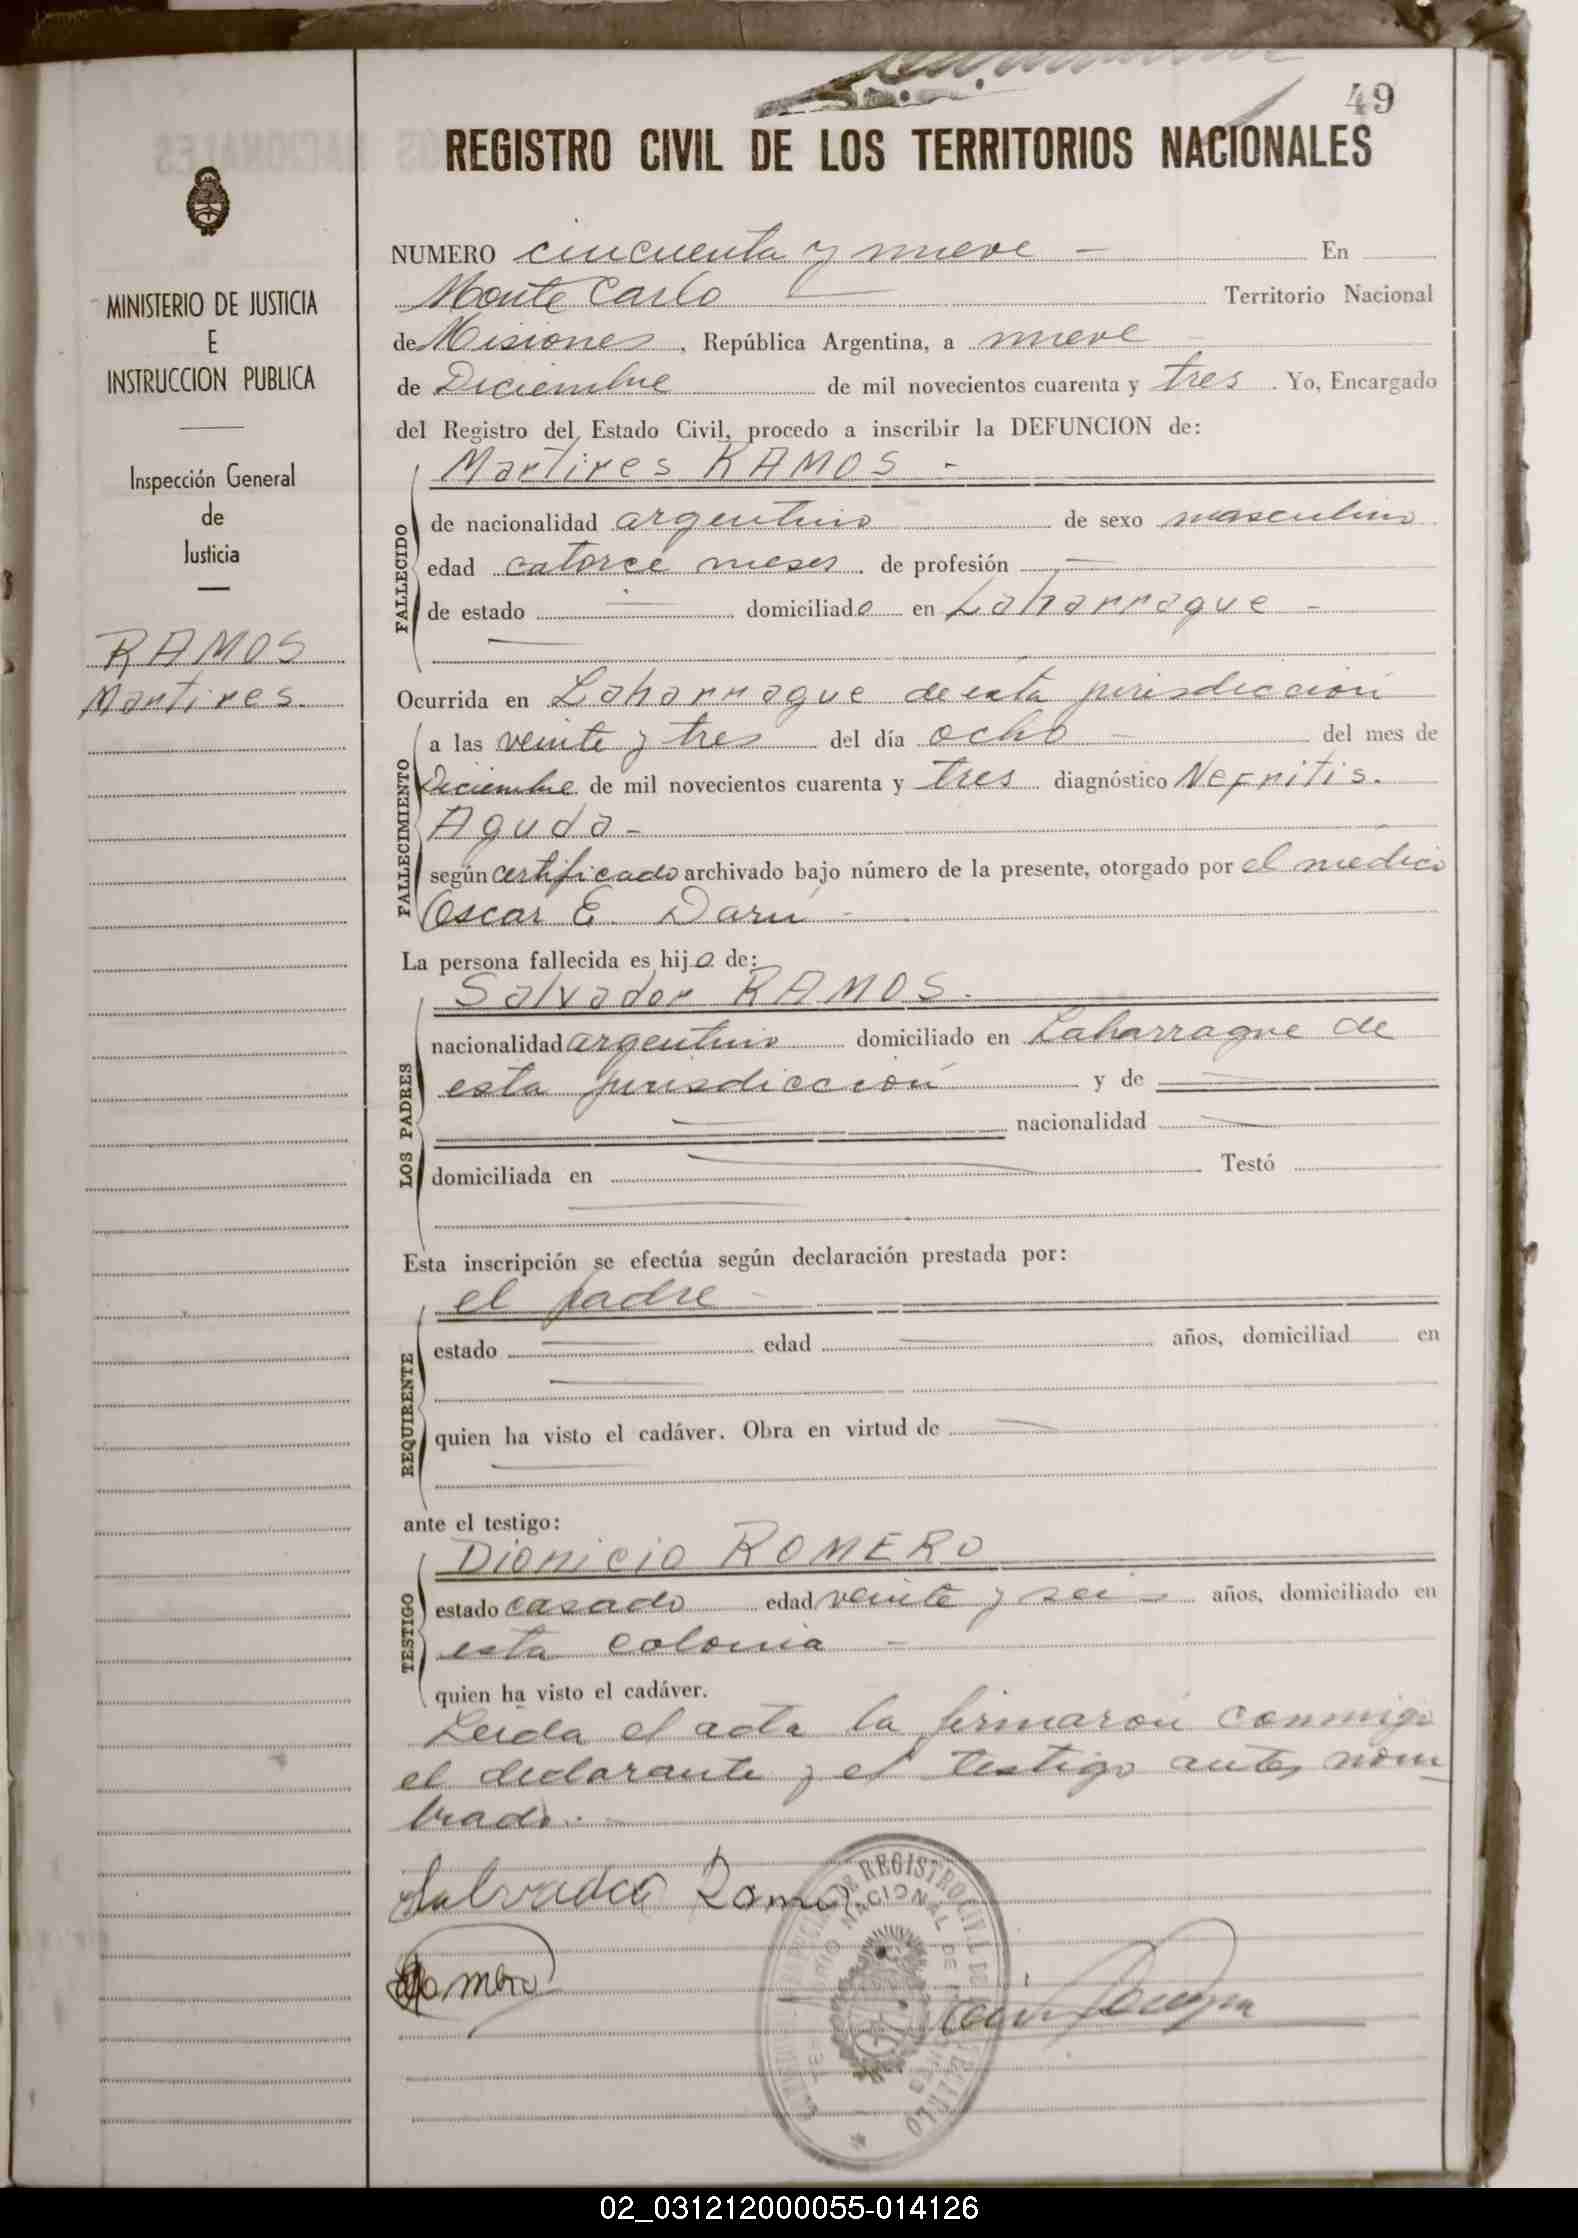 49
REGISTRO CIVIL DE LOS TERRITORIOS NACIONALES
MINISTERIO DE JUSTICIA
E
INSTRUCCION PUBLICA
Inspección General
de
Justicia
RAMOS
Martires.
NUMERO cincuenta y nueve - En
Monte Carlo Territorio Nacional
de Misiones, República Argentina, a nueve
de Diciembre de mil novecientos cuarenta y tres. Yo, Encargado
del Registro del Estado Civil, procedo a inscribir la DEFUNCION de:
Martires RAMOS -
FALLECIDO
de nacionalidad argentino de sexo masculino
edad catorce meses de profesión —
de estado — domiciliado en Laharrague -
Ocurrida en Laharrague de esta jurisdiccion
FALLECIMIENTO
a las veinte y tres del día ocho - del mes de
Diciembre de mil novecientos cuarenta y tres diagnóstico Nefritis.
Aguda -
según certificado archivado bajo número de la presente, otorgado por el medico
Oscar E. Daru -
La persona fallecida es hijo de:
Salvador RAMOS.
LOS PADRES
nacionalidad argentino domiciliado en Laharrague de
esta jurisdiccion y de —
— nacionalidad —
domiciliada en — Testó
Esta inscripción se efectúa según declaración prestada por:
el padre
REQUIRENTE
estado — edad — años, domiciliad en
quien ha visto el cadáver. Obra en virtud de —
ante el testigo:
Dionicio ROMERO
TESTIGO
estado casado edad veinte y seis años, domiciliado en
esta colonia -
quien ha visto el cadáver.
Leida el acta la firmaron conmigo
el declarante y el testigo antes nom-
brado. -
Salvador Ramos
Romero
REGISTRO CIVIL
NACIONAL DE
02_031212000055-014126